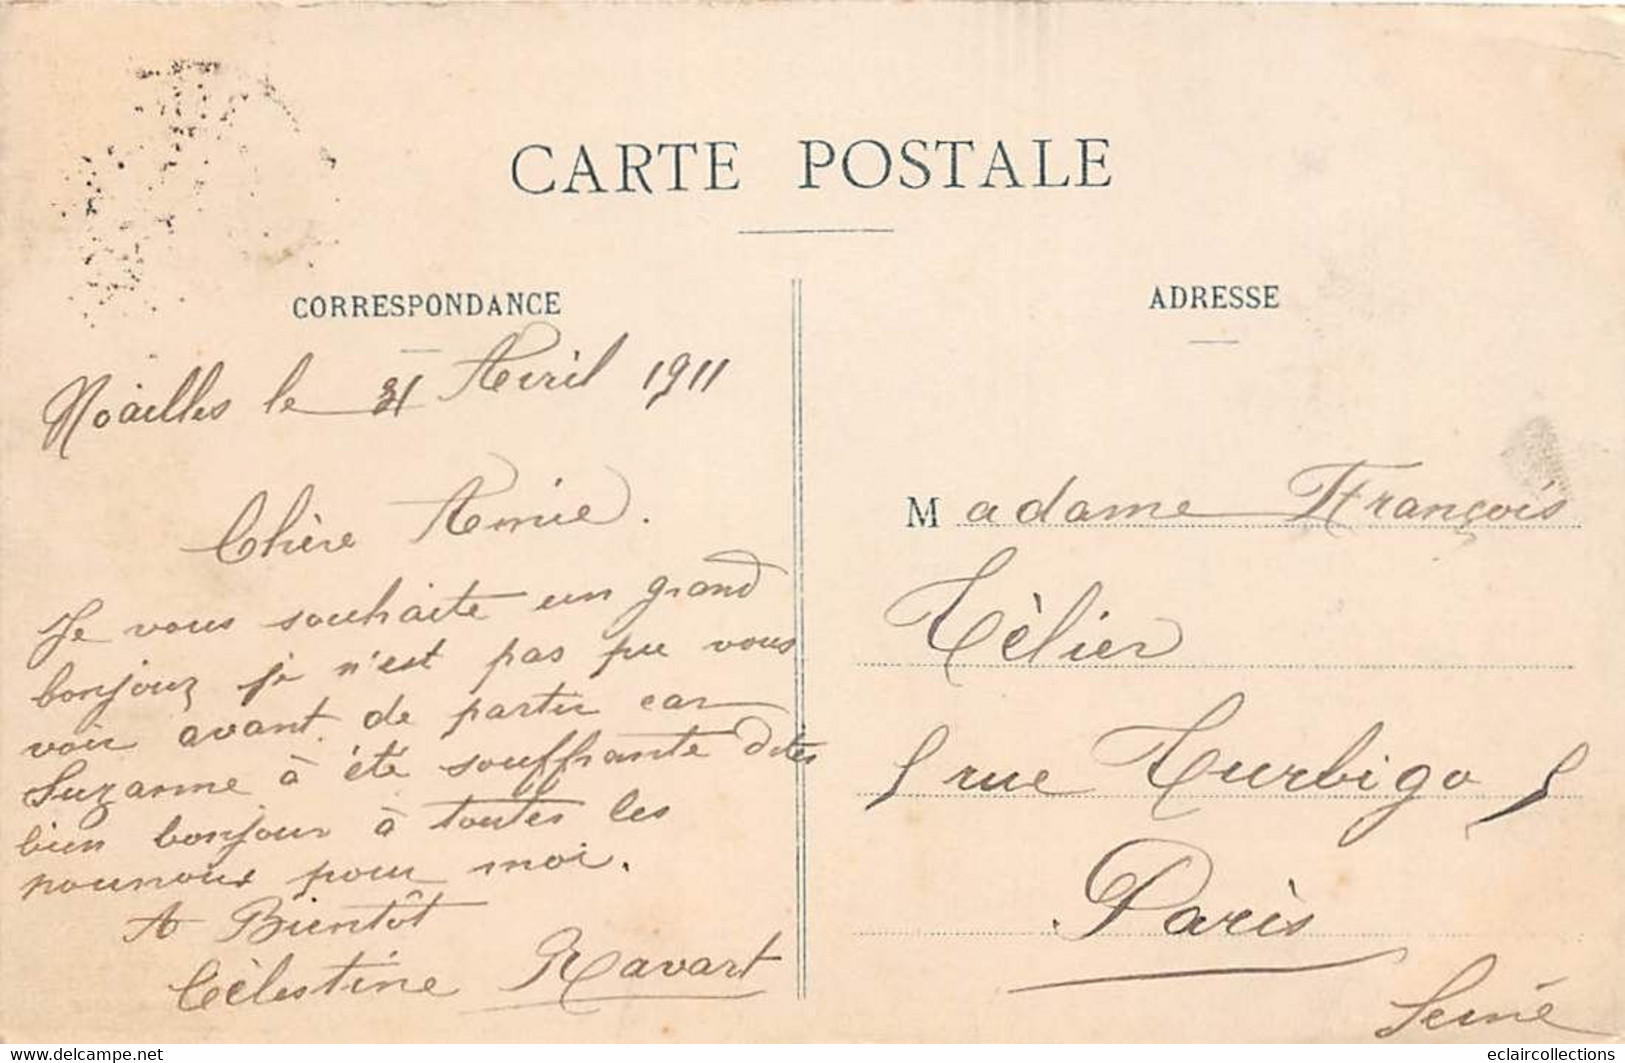 CARTE POSTALE
CORRESPONDANCE
Noailles le Avril 1911
Chère Amie.
Je vous souhaite un grand
bonjour je n'est pas pu vous
voir avant de partir car
Suzanne à été souffrante dites
bien bonjour à toutes les
pour moi.
A Bientôt
Célestine Ravart
ADRESSE
Madame François
Tèlier
5 rue Turbigo 5
Paris
Seine
delcampe.net
eclaircollections